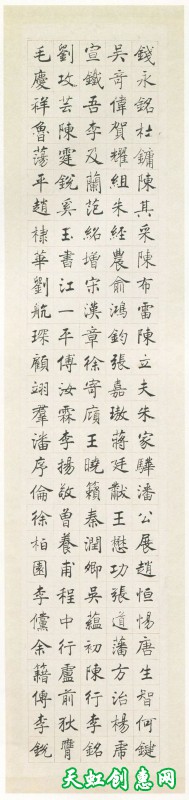 錢永銘杜鏞陳其采陳布雷陳立夫朱家驊潘公展趙恒惕唐生智何鍵
吳奇偉賀耀組朱經農俞鴻鈞張嘉璈蔣廷黻王懋功張道藩方治楊虎
宣鐵吾李及蘭范紹增宋漢章徐寄廎王曉籟秦潤卿吳蘊初陳行李銘
劉攻芸陳霆銳奚玉書江一平傅汝霖李揚敬曾養甫程中行盧前狄膺
毛慶祥魯蕩平趙棣華劉航琛顧翊羣潘序倫徐柏園李儻余籍傳李銳
天虹创惠网